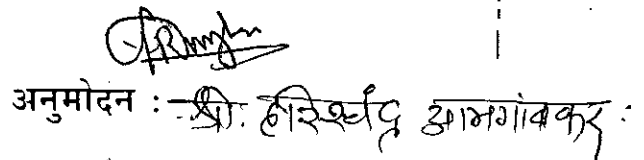 अनुमोदन :- श्री. हरिश्चंद्र आमगांवकर.